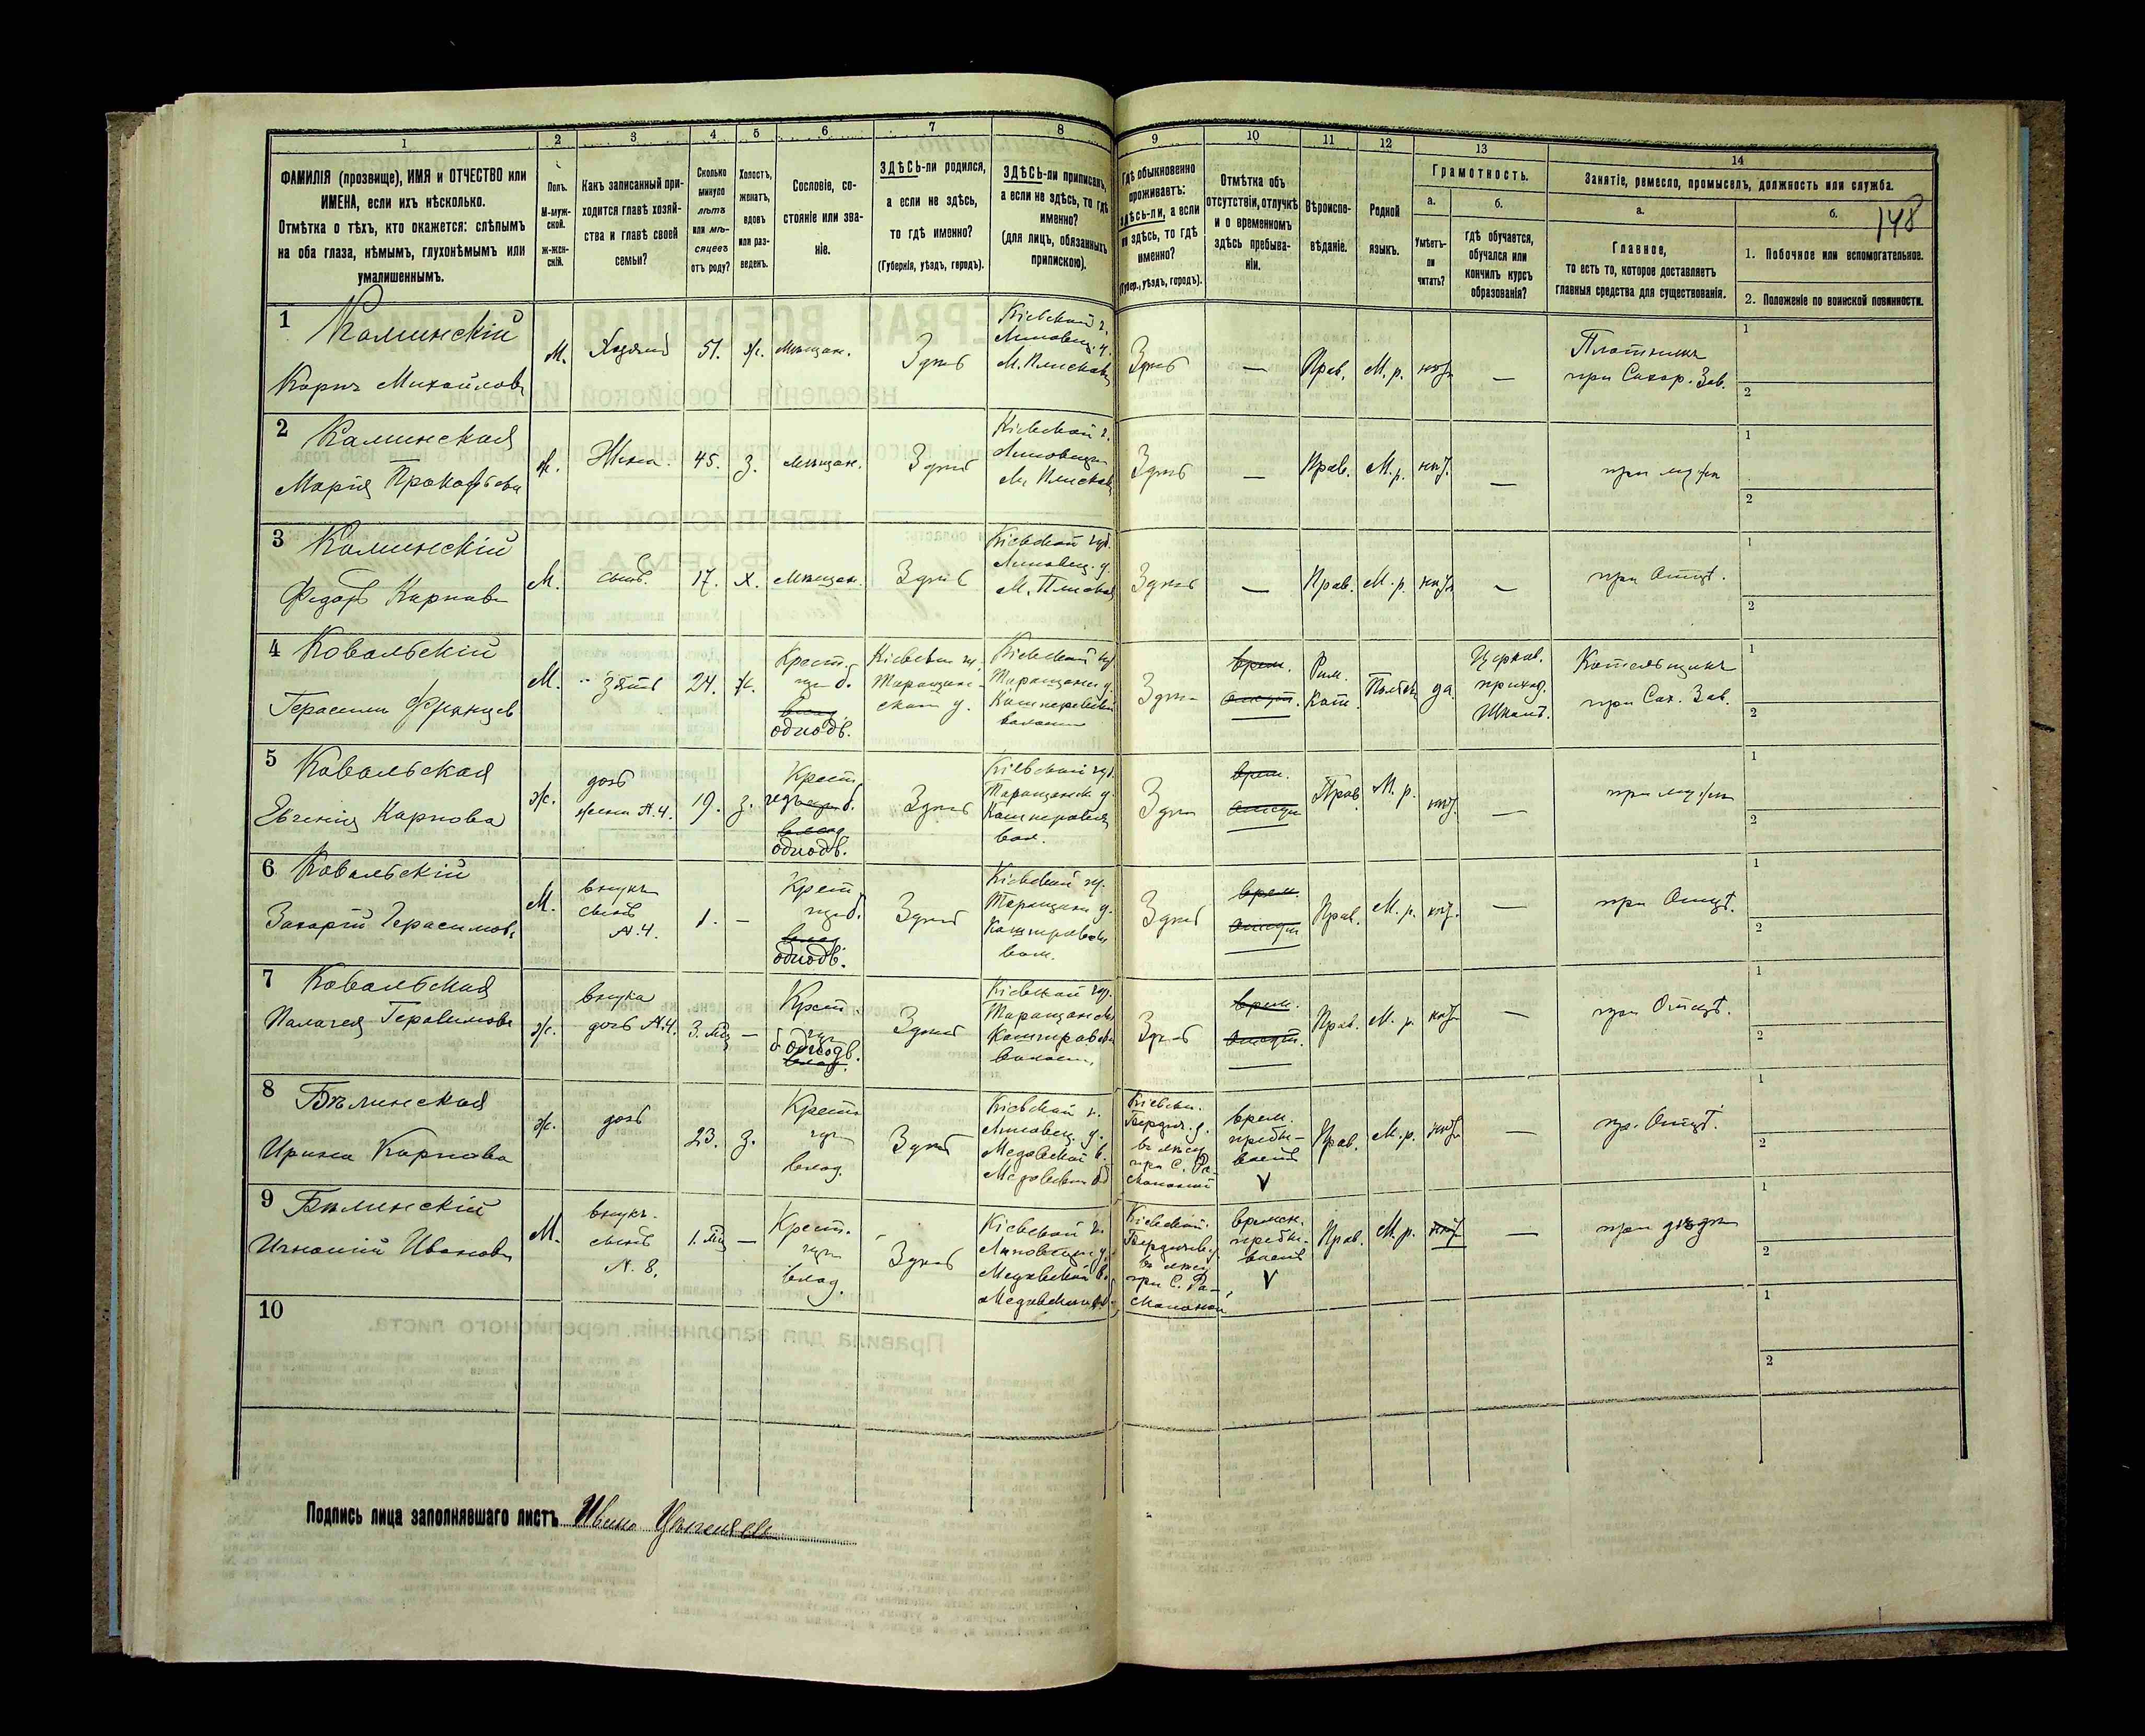 1 2 3 4 5 6 7 8 9 10 11 12 13 14
148
ФАМИЛІЯ (прозвище), ИМЯ и ОТЧЕСТВО или
ИМЕНА, если ихъ нѣсколько.
Отмѣтка о тѣхъ, кто окажется: слѣпымъ
на оба глаза, нѣмымъ, глухонѣмымъ или
умалишеннымъ.
Полъ.
М-муж-
ской.
Ж-жен-
скій.
Какъ записанный при-
ходится главѣ хозяй-
ства и главѣ своей
семьи?
Сколько
минуло
лѣтъ
или мѣ-
сяцевъ
отъ роду?
Холостъ,
женатъ,
вдовъ
или раз-
веденъ.
Сословіе, со-
стояніе или зва-
ніе.
ЗДѢСЬ-ли родился,
а если не здѣсь,
то гдѣ именно?
(Губернія, уѣздъ, городъ).
ЗДѢСЬ-ли приписанъ,
а если не здѣсь, то гдѣ
именно?
(для лицъ, обязанныхъ
припискою).
Гдѣ обыкновенно
проживаетъ:
здѣсь-ли, а если
не здѣсь, то гдѣ
именно?
(Губер., уѣздъ, городъ).
Отмѣтка объ
отсутствіи, отлучкѣ
и о временномъ
здѣсь пребыва-
ніи.
Вѣроиспо-
вѣданіе.
Родной
языкъ.
Грамотность.
а.
Умѣетъ-
ли
читать?
б.
Гдѣ обучается,
обучался или
кончилъ курсъ
образованія?
Занятіе, ремесло, промыселъ, должность или служба.
а.
Главное,
то есть то, которое доставляетъ
главныя средства для существованія.
б.
1. Побочное или вспомогательное.
2. Положеніе по воинской повинности.
1
Каминскій
Карпъ Михайловъ
М.
Хозяинъ
51.
ж.
мѣщан.
Здѣсь
Кіевской г.
Липовец. у.
М. Плисковъ
Здѣсь
—
Прав.
М. р.
нѣтъ
—
Плотникъ
при Сахар. Зав.
1
2
2
Каминская
Марія Прокофьева
ж.
Жена.
45.
з.
мѣщан.
Здѣсь
Кіевской г.
Липовец.
М. Плисковъ
Здѣсь
—
Прав.
М. р.
нѣт.
—
при мужѣ
1
2
3
Каминскій
Федоръ Карповъ
М.
сынъ.
17.
х.
мѣщан.
Здѣсь
Кіевской губ.
Липовец. у.
М. Плисков
Здѣсь
—
Прав.
М. р.
нѣтъ
—
при Отцѣ.
1
2
4
Ковальскій
Герасимъ Францев
М.
зять
24.
ж.
Крест.
одподв.
Кіевской г.
Таращан-
ском у.
Кіевской гу
Таращанск у.
волости
Здѣсь
врем.
отсут.
Рим.
Кат.
Польск
да.
Церков.
приход.
Школ.
Котельщикъ
при Сах. Зав.
1
2
5
Ковальская
Евгенія Карпова
ж.
дочь
жена №4.
19.
з.
Крест.
одподв.
Здѣсь
Кіевской губ.
Таращанск у.
вол.
Здѣсь
врем.
отсут
Прав.
М. р.
нѣт.
—
при мужѣ
1
2
6
Ковальскій
Захарій Герасимовъ
М.
внукъ
сынъ
№.4.
1.
—
Крест
одподв.
Здѣсь
Кіевской гу.
Таращанск у.
вол.
Здѣсь
врем.
отсут
Прав.
М. р.
нѣт.
—
при Отцѣ.
1
2
7
Ковальская
Палагея Герасимова
ж.
внука
дочь №.4.
3. мѣц
—
Крест.
одподв.
Здѣсь
Кіевской губ.
Таращанск
волост.
Здѣсь
врем.
отсут.
Прав.
М. р.
нѣт
—
при Отцѣ.
1
2
8
Бѣлинская
Ирина Карпова
ж.
дочь
23.
з.
Крест.
влад.
Здѣсь
Кіевской г.
Липовец. у.
Медовской в.
Кіевск.
Бердич. у.
при С.
врем.
пребы-
ваетъ
V
Прав.
М. р.
нѣт
—
пр. Отцѣ.
1
2
9
Бѣлинскій
Игнатій Ивановъ
М.
внукъ
сынъ
№. 8.
1. мѣц
—
Крест.
влад.
Здѣсь
Кіевской г.
Липовецк у.
Медовской в.
Кіевской.
Бердичев. у
при С.
времен.
пребы-
ваетъ
V
Прав.
М. р.
нѣт
—
при дѣдѣ
1
2
10
1
2
Подпись лица заполнявшаго листъ Иванъ